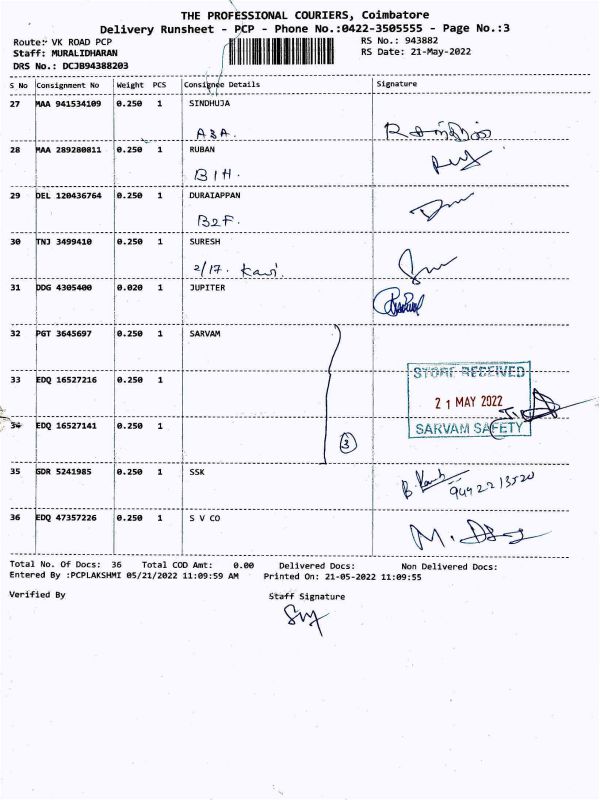 THE PROFESSIONAL COURIERS, Coimbatore
Delivery Runsheet - PCP - Phone No.:0422-3505555 - Page No.:3
Route: VK ROAD PCP
RS No.: 943882
Staff: MURALIDHARAN
RS Date: 21-May-2022
DRS No.: DCJB94388203
S No Consignment No Weight PCS Consignee Details Signature
27 MAA 941534109 0.250 1 SINDHUJA
28 MAA 289280811 0.250 1 RUBAN
B1H.
29 DEL 120436764 0.250 1 DURAIAPPAN
B2F.
30 TNJ 3499410 0.250 1 SURESH
2/17. Kavi.
31 DDG 4305400 0.020 1 JUPITER
32 PGT 3645697 0.250 1 SARVAM
STORE RECEIVED
33 EDQ 16527216 0.250 1
21 MAY 2022
34 EDQ 16527141 0.250 1
SARVAM SAFETY
3
35 GDR 5241985 0.250 1 SSK
9442213520
36 EDQ 47357226 0.250 1 S V CO
Total No. Of Docs: 36 Total COD Amt: 0.00 Delivered Docs: Non Delivered Docs:
Entered By :PCPLAKSHMI 05/21/2022 11:09:59 AM Printed On: 21-05-2022 11:09:55
Verified By Staff Signature